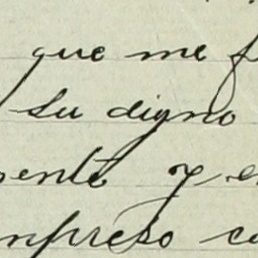 que me f
su digno
ente y e
mpreso co